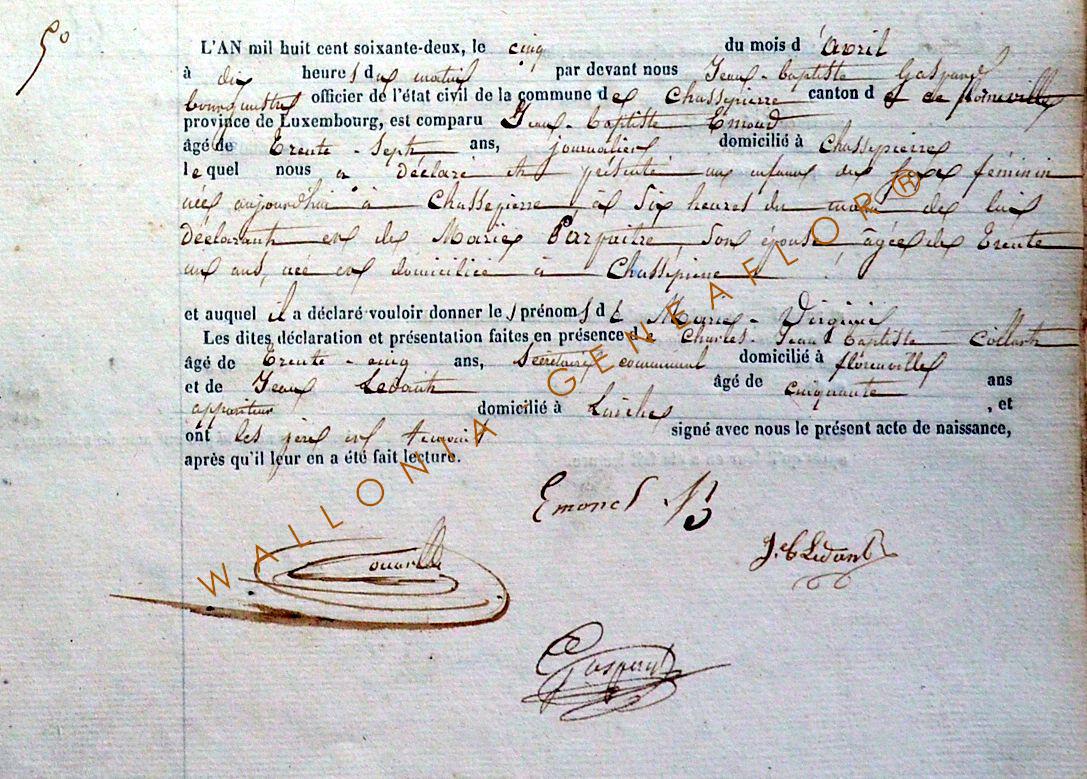 5°
L'AN mil huit cent soixante-deux, le cinq du mois d'avril
à dix heures du matin par devant nous Jean-baptiste Gaspard
bourgmestre officier de l'état civil de la commune de Chassepierre canton de de florenville
province de Luxembourg, est comparu Jean-baptiste Emond
âgé de trente-sept ans, journalier domicilié à Chassepierre
lequel nous a déclaré et présenté un enfant du sexe féminin
née aujourd'hui à Chassepierre, à six heures du matin de lui
déclarant et de Marie Parfaitre, son épouse âgée de trente
un ans, née et domiciliée à Chassepierre
et auquel il a déclaré vouloir donner les prénoms de Marie-Virginie
Les dites déclaration et présentation faites en présence de Charles-Jean baptiste Collart
âgé de trente-cinq ans, secrétaire communal domicilié à florenville
et de Jean Ledant âgé de cinquante ans
appariteur domicilié à Laiche, et
ont les père et témoins signé avec nous le présent acte de naissance,
après qu'il leur en a été fait lecture.
Emond JB
J. Ledant
Gaspard
WALLONIA GENEAFLOR ®